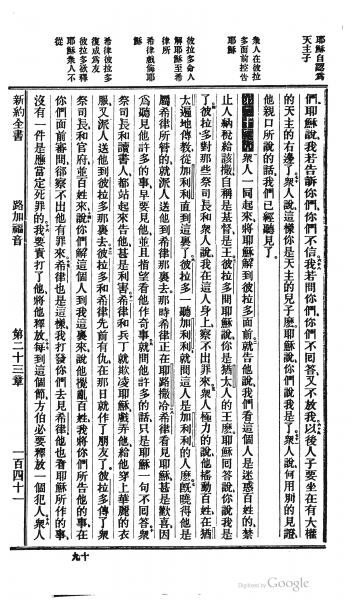 耶穌自認爲
天主子
衆人在彼拉
多面前控告
耶穌
彼拉多命人
解耶穌至希
律所
希律戲侮耶
穌
希律彼拉多
復成爲友
彼拉多欲釋
耶穌衆人不
從
們耶穌說我若告訴你們你們不信我若問你們你們不回答又不放我以後人子要坐在有大權
的天主的右邊了衆人說這樣你是天主的兒子麼耶穌說你們說我是了衆人說何用別的見證
他親口所說的話我們已經聽見了
第二十三章 衆人一同起來將耶穌解到彼拉多面前就告他說我們看這個人是迷惑百姓的禁
止人納稅給該撒自稱是基督是王彼拉多問耶穌說你是猶太人的王麼耶穌回答說你說我是
了彼拉多對那些祭司長和衆人說我在這人身上察不出罪來衆人極力的說他搖動百姓在猶
太遍地傳敎從加利利直到這裏了彼拉多一聽加利利就問這人是加利利的人麼旣曉得他是
屬希律所管的就派人送他到希律那裏去那時希律正在耶路撒冷希律看見耶穌甚是歡喜因
爲聽見他許多的事早要見他並且指望看他作奇事就問他許多的話只是耶穌一句不回答衆
祭司長和讀書人都站起來告他甚是利害希律和兵丁就欺凌耶穌戲弄他給他穿上華麗的衣
服又派人送他到彼拉多那裏去彼拉多和希律先前有仇在那日就作了朋友了彼拉多傳了衆
祭司長和官府並百姓來說你們解這個人到我這裏來說他攪亂百姓我將你們所告他的事在
你們面前審問卻察不出他有罪來希律也是這樣我打發你們去見希律他也看耶穌所作的事
沒有一件是應當定死罪的我要責打了他將他釋放每到這個節方伯必要釋放一個犯人衆人
新約全書 路加福音 第二十三章 一百四十一
十九
Digitized by Google